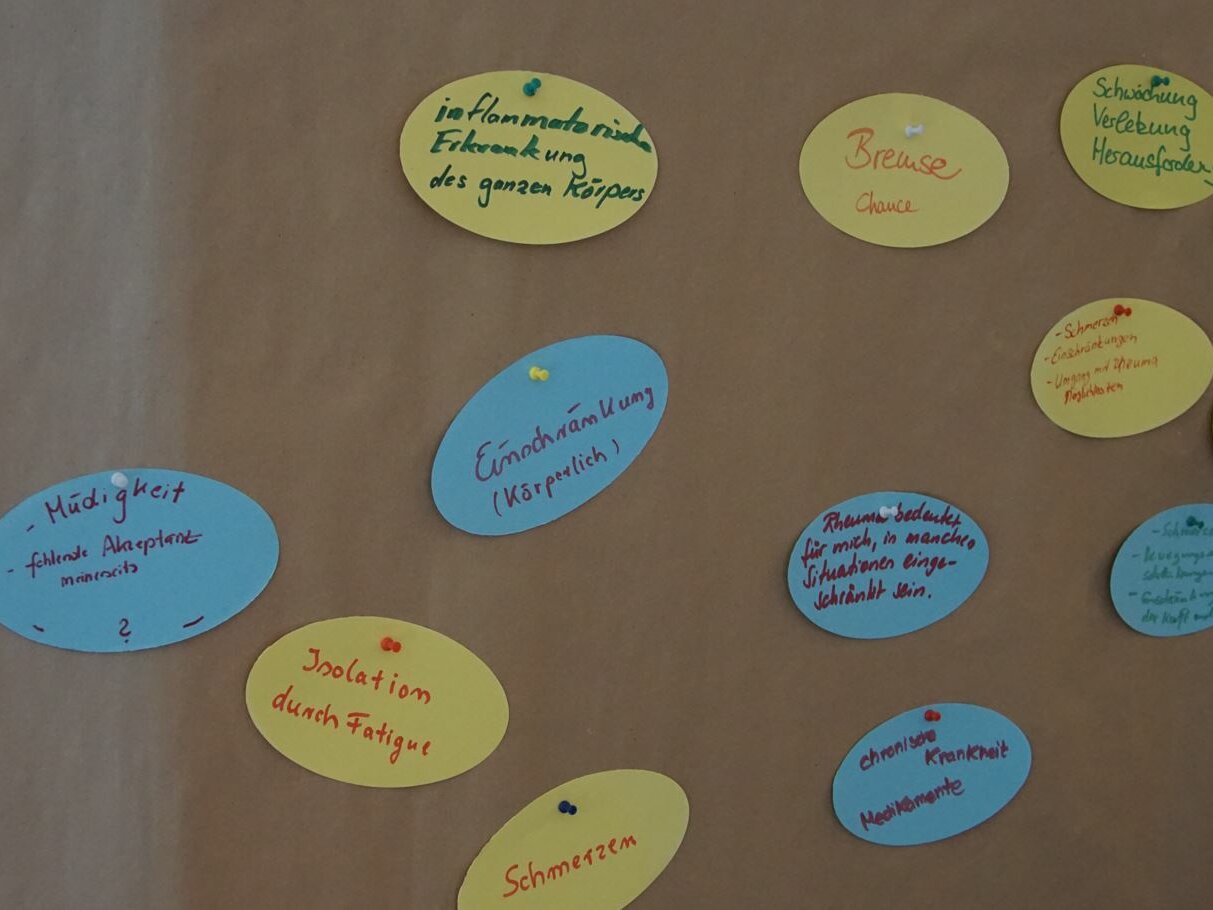 inflammatorische
Erkrankung
des ganzen Körpers
Bremse
Chance
Schwächung
Verletzung
Herausforder-
- Schmerzen
- Einschränkungen
- Umgang mit Rheuma
Möglichkeiten
Einschränkung
(Körperlich)
- Müdigkeit
- fehlende Akzeptanz
meinerseits
- ? -
Rheuma bedeutet
für mich, in manchen
Situationen einge-
schränkt sein.
Isolation
durch Fatigue
chronische
Krankheit
Medikamente
Schmerzen